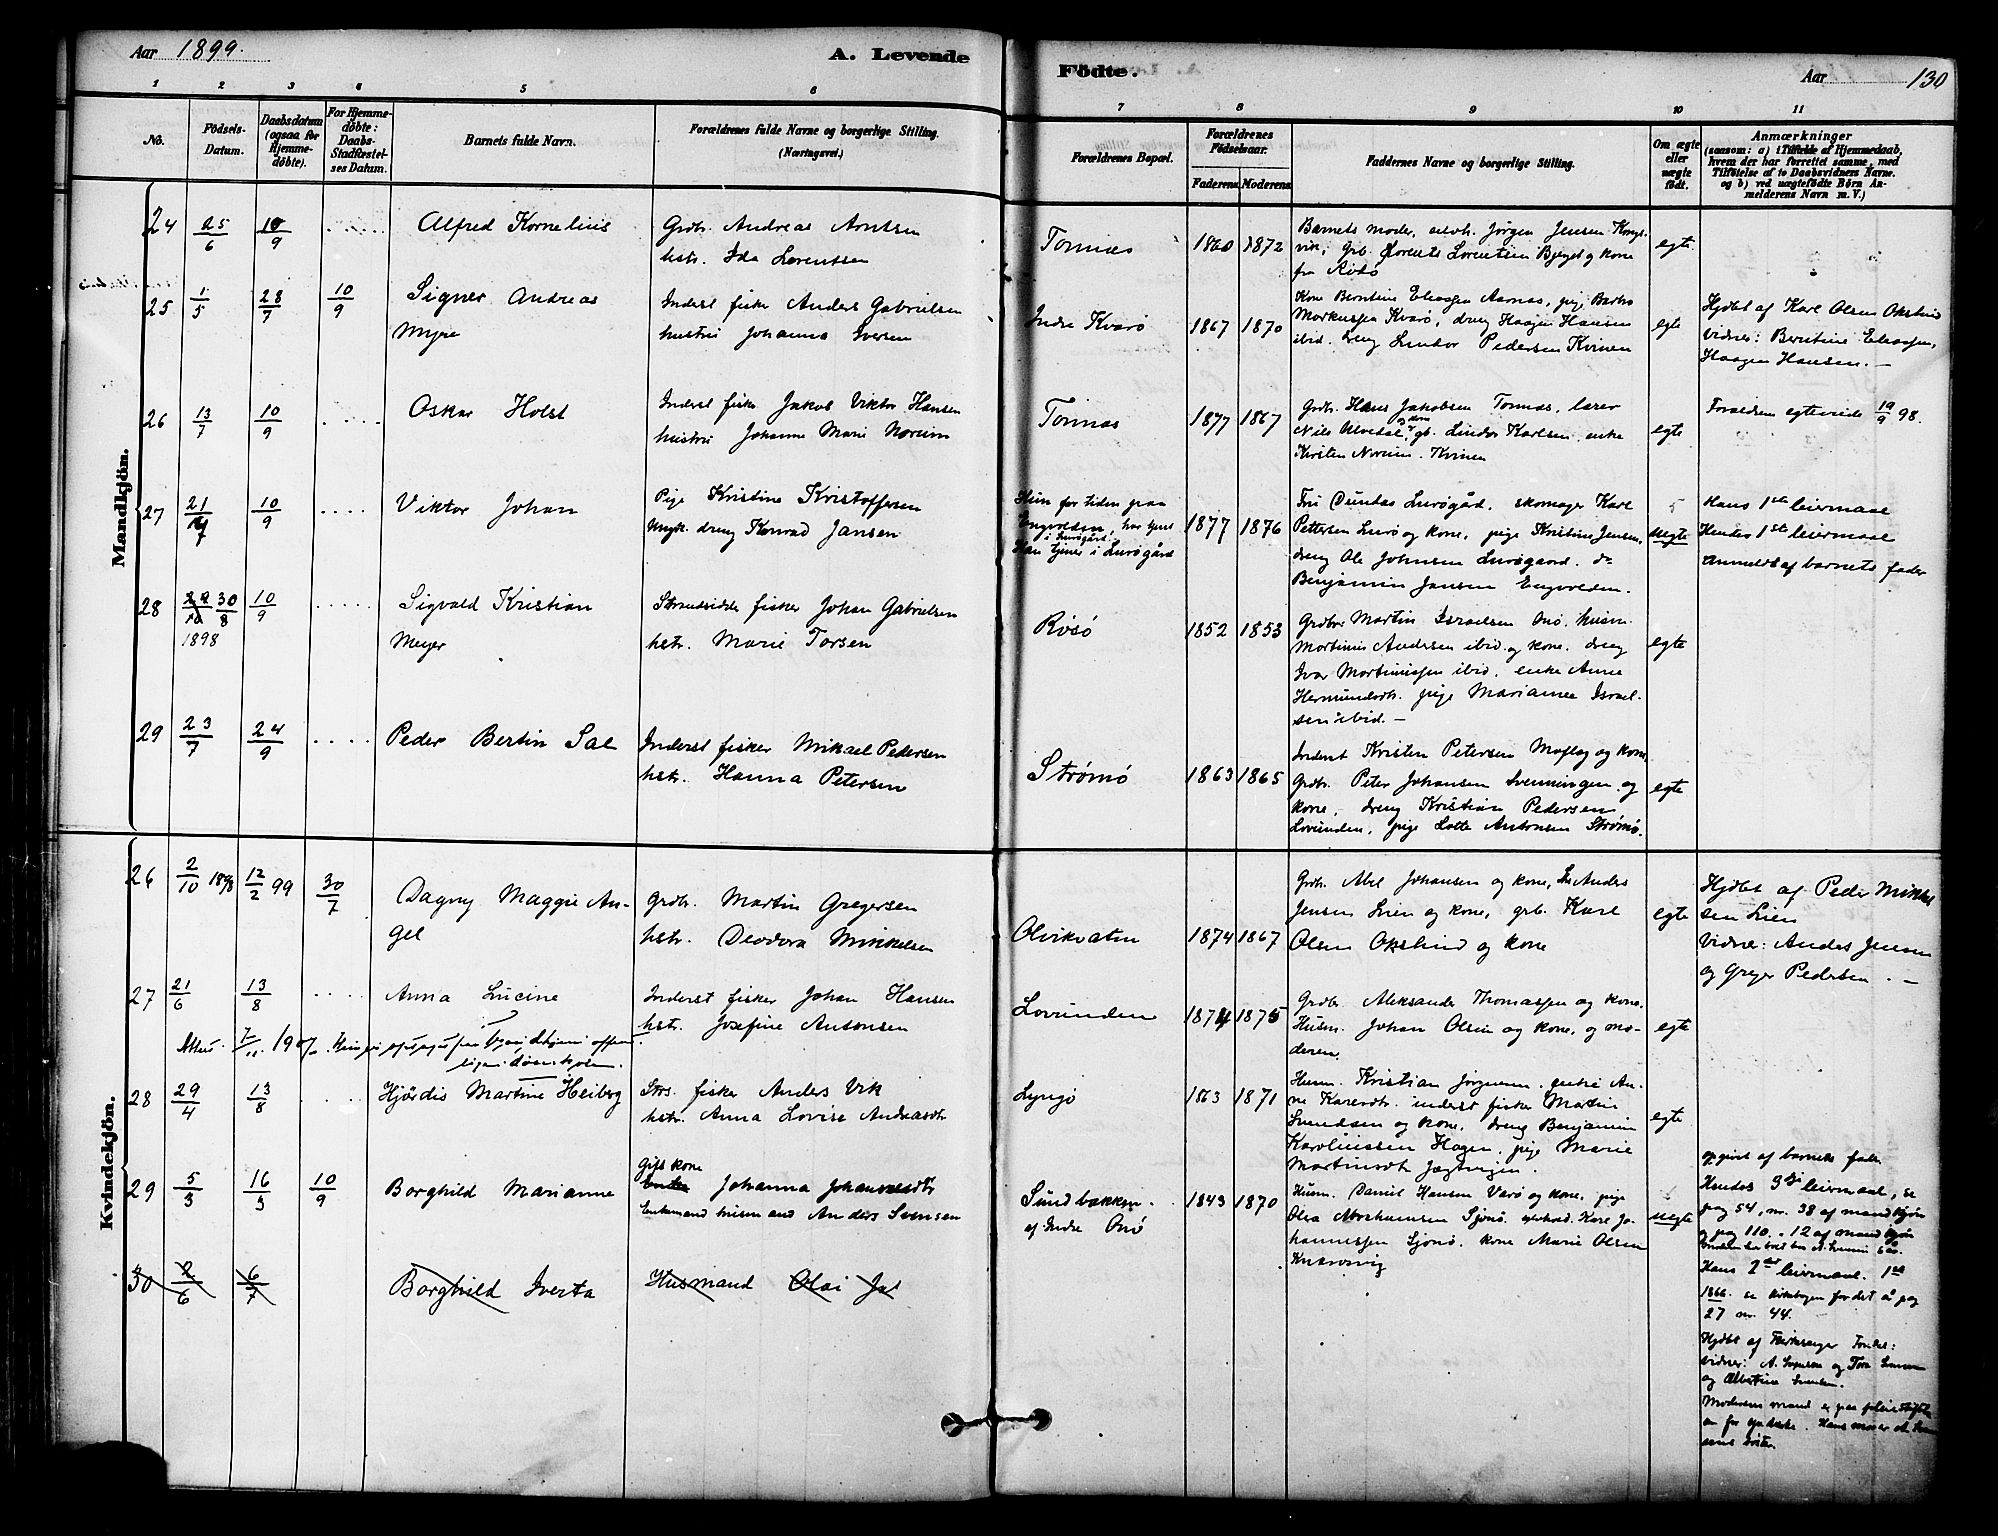 Aar 1899.
A. Levende
Födte.
Aar 130
1 2 3 4 5 6 7 8 9 10 11
No.
Födsels-
Datum.
Daabsdatum
(ogsaa for
Hjemme-
döbte).
For Hjemme-
döbte:
Daabs-
Stadfæstel-
ses Datum.
Barnets fulde Navn.
Forældrenes fulde Navne og borgerlige Stilling.
(Næringsvei.)
Forældrenes Bopæl.
Forældrenes
Födselsaar.
Faderens Moderens
Faddernes Navne og borgerlige Stilling.
Om ægte
eller
uægte
födt.
Anmærkninger
(saasom: a) i Tilfælde af Hjemmedaab,
hvem der har forrettet samme, med
Tilföielse af to Daabsvidners Navne.
og b) ved uægtefödte Börn An-
melderens Navn m. V.)
Mandkjön.
24 25/6 10/9 Alfred Kornelius
Grdbr. Andreas Arntsen
hstr. Ida Lorentsen
Tonnes 1872
Barnets moder, Jørgen Jensen Kongs-
vik, Grb. Lorents Lorentsen og kone
fra Røsø
egte
25 1/5 28/7 10/9 Signer Andreas
Myre
Inderst fisker Anders Gabrielsen
hustru Johanna Iversen
Indre Kvarø 1867 1870
Kone Berntine Eliassen Aarnæs, pige
Markussen Kvarø, dreng Haagen Hansen
ibid. dreng Lindor Pedersen Kvinen
egte
Hjdbt af Karl Olsen
vidner: Berntine Eliassen,
Haagen Hansen. —
26 13/7 10/9 Oskar Holst
Inderst fisker Jakob Viktor Hansen
hustru Johanne Marie Norum
Tonnes 1877 1867
Grdb. Hans Jakobsen Tonnes, lærer
Nils Ulvedal, gb. Lindor Karlsen, enke
Kirsten Norum. Kvinen
egte
Forældrene egteviede 19/9 98.
27 21/7 10/9 Viktor Johan
Pige Kristine Kristoffersen
Ungk. dreng Konrad Jansen
Hun for tiden paa
Engvolden, har tjent
i Lurøgård.
Han tjener i Lurøgård
1877 1876
Fru Dundas Lurøgård, skomager Karl
Pettersen Lurø og kone, pige Kristine Jensen,
dreng Ole Johnsen Lurøgaard, do
Benjamin Jansen Engvolden.
uegte
Hans 1ste leiermaal
Hendes 1ste leiermaal
Anmeldt af barnets fader
28 30/8 10/9 Sigvald Kristian
1898 Meyer
Strandsidder fisker Johan Gabrielsen
hstr. Marie Torsen
Røsø 1852 1853
Grdbr Martin Israelsen Onø, husm.
Martinus Andersen ibid og kone, dreng
Ivar Martinussen ibid, enke Anne
Hermundsdtr. pige Marianne Israel-
sen ibid. —
egte
29 23/7 24/9 Peder Bertin Sal
Inderst fisker Mikael Pedersen
hstr. Hanna Petersen
Strømø 1863 1865
Inderst Kristen Petersen og kone,
Grdbr. Peter Johansen Svenningen og
kone, dreng Kristian Pedersen
Lovunden, pige Lotte Antonsen Strømø.
egte
Kvindekjön.
26 2/10 1898 12/2 99 30/7 Dagny Maggie An-
gel
Grdb. Martin Gregersen
hstr. Deodora Mikkelsen
Olvikvatn 1874 1867
Grdb. Abel Johansen og kone, Anders
Jensen Lien og kone, grb. Karl
Olsen og kone
egte
Hjdbt af Peder Mikkel
sen Lien
Vidner: Anders Jensen
og Greger Pedersen. —
27 21/6 13/8 Anna Lucine
Inderst fisker Johan Hansen
hstr. Josefine Antonsen
Lovunden 1874 1875
Grdbr. Aleksander Thomassen og kone.
Husm. Johan Olsen og kone, og mo-
deren.
egte
28 29/4 13/8 Hjørdis Martine Heiberg
Strs. fisker Anders Vik
hstr. Anna Lovise Andreasdtr
Lyngø 1863 1871
Husm. Kristian Jørgensen, An-
ne Karendtr. inderst fisker Martin
Svendsen og kone, dreng Benjamin
Karoliussen Hagen, pige Marie
Martinsdtr
egte
29 5/3 16/5 10/9 Borghild Marianne
Gift kone
Johanna Johannesdtr
Enkemand husmand Anders Svensen
Sundbakken.
af Indre Onø
1843 1870
Husm. Daniel Hansen Varø og kone, pige
Olea Abrahamsen Sjonø. Karl Jo-
hannessen Sjonø. kone Marie Olsen
uegte
opgivet af barnets fader
Hendes 3die leiermaal, se
pag 54, nr. 38 af mandkjøn
og pag 110. 12 af mandkjøn
Hans 2det leiermaal. 1ste
1866. se kirkebogen for det å pag
27 nr. 44.
Hjdbt af Kirkesanger
vidner: A. Svensen og
og Albertine Svensen.
30 2/6 6/7 Borghild Iverta
Husmand Olai Ja